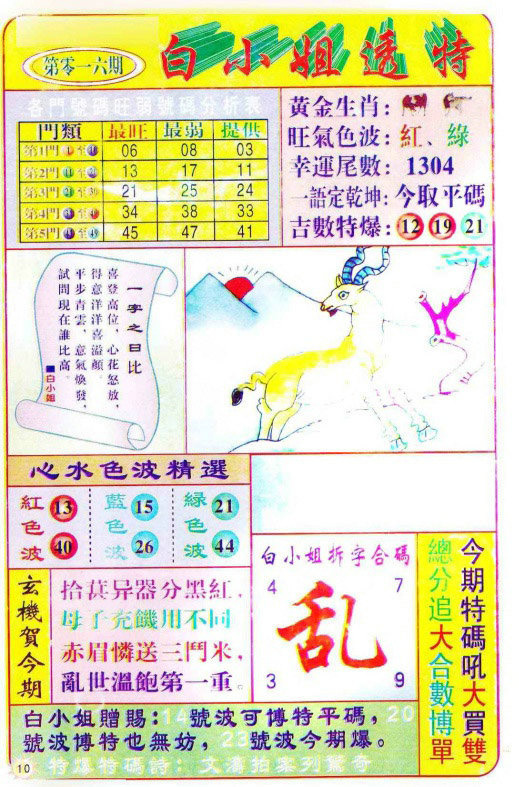 第零一六期
白小姐透特
各門號碼旺弱號碼分析表
門類 最旺 最弱 提供
第1門 1至 06 08 03
第2門 至 13 17 11
第3門 至 21 25 24
第4門 至 34 38 33
第5門 至49 45 47 41
黃金生肖:
旺氣色波:紅、綠
幸運尾數: 1304
一語定乾坤:今取平碼
吉數特爆: 12 19 21
一字之曰比
喜登高位，心花怒放，
得意洋洋喜溢顏。
平步青雲，意氣煥發，
試問現在誰比高。
■白小姐
心水色波精選
紅色波 13 40
藍色波 15 26
綠色波 21 44
玄機賀今期
拾葚异器分黑紅，
母子充饑用不同
赤眉憐送三鬥米，
亂世溫飽第一重。
白小姐拆字合碼
4 7
乱
3 9
今期特碼吼大買雙
總分追大合數博單
白小姐贈賜:14號波可博特平碼，20
號波博特也無妨，23號波今期爆。
特爆特碼詩：文濤拍案列驚奇
10